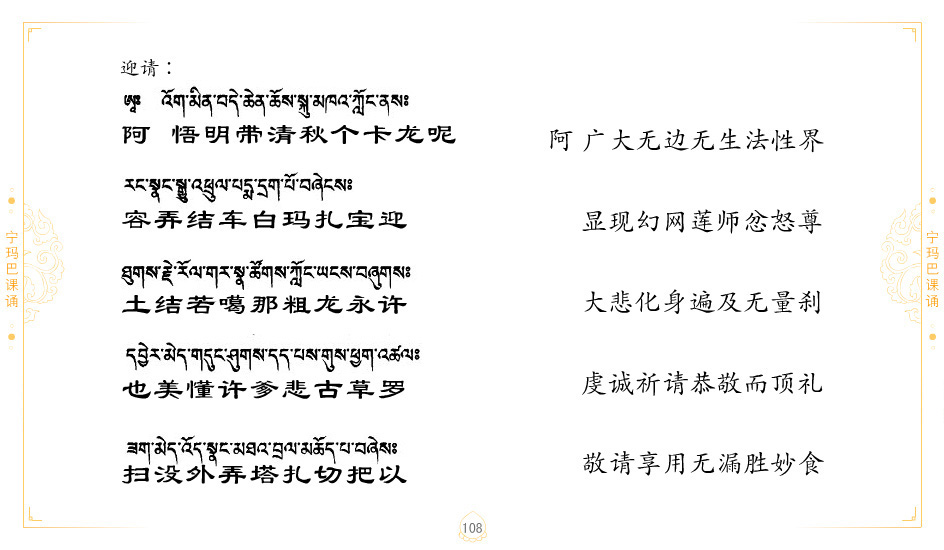 迎请：
ཨཱཿ འོག་མིན་བདེ་ཆེན་ཆོས་སྐུ་མཁའ་ཀློང་ནསཿ
阿 悟明带清秋个卡龙呢
阿 广大无边无生法性界
རང་སྣང་སྒྱུ་འཕྲུལ་པདྨ་དྲག་པོ་བཞེངསཿ
容弄结车白玛扎宝迎
显现幻网莲师忿怒尊
ཐུགས་རྗེ་རོལ་གར་སྣ་ཚོགས་ཀློང་ཡངས་བཞུགསཿ
土结若噶那粗龙永许
大悲化身遍及无量刹
དབྱེར་མེད་གདུང་ཤུགས་དད་པས་གུས་ཕྱག་འཚལཿ
也美懂许爹悲古草罗
虔诚祈请恭敬而顶礼
ཟག་མེད་འོད་སྣང་མཐའ་བྲལ་མཆོད་པ་བཞེསཿ
扫没外弄塔扎切把以
敬请享用无漏胜妙食
宁玛巴课诵
宁玛巴课诵
108